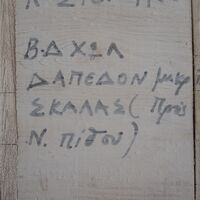 Β.Δ ΧΩΛ
ΔΑΠΕΔΟΝ μικρ
ΣΚΑΛΑΣ ( Πρὸς
Ν. Πίθου )